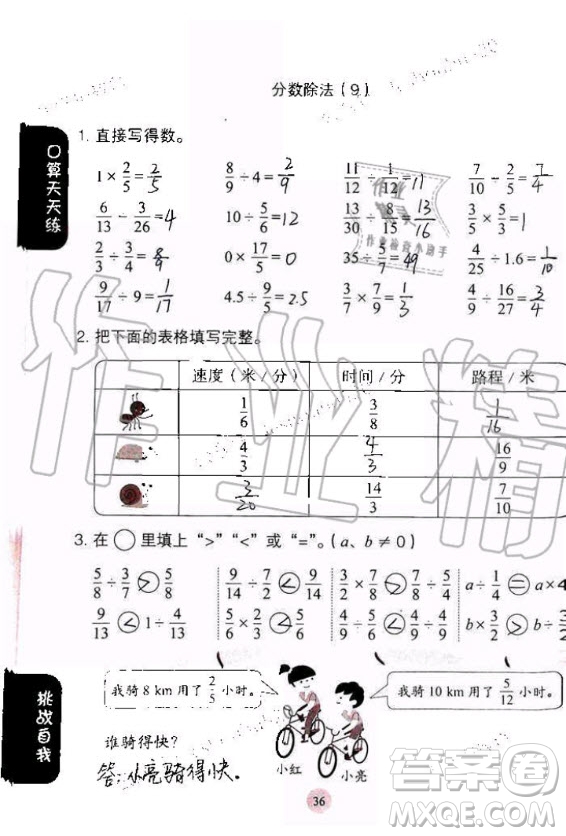 分数除法(9)
口算天天练
1. 直接写得数。
1×2/5=2/5 8/9÷4=2/9 11/12÷1/12=11 7/10÷2/5=7/4
6/13÷3/26=4 10÷5/6=12 13/30÷8/15=13/16 3/5×5/3=1
2/3÷3/4=8/9 0×17/5=0 35÷5/7=49 4/25÷1.6=1/10
9/17÷9=1/17 4.5÷9/5=2.5 3/7×7/9=1/3 4/9÷16/27=3/4
2. 把下面的表格填写完整。
速度(米/分) 时间/分 路程/米
1/6 3/8 1/16
4/3 4/3 16/9
3/20 14/3 7/10
3. 在○里填上“>”“<”或“=”。(a、b≠0)
5/8÷3/7>5/8 9/14÷7/2<9/14 3/2×7/8>7/8÷5/4 a÷1/4=a×4
9/13<1÷4/13 5/6×2/3<5/6 4/9÷5/6>4/9×5/6 b×3/2>b÷3/2
挑战自我
我骑8 km用了2/5小时。
我骑10 km用了5/12小时。
谁骑得快?
答:小亮骑得快。
小红 小亮
36
作业精
作业
作业检查小助手
答案圈
MXQE.COM